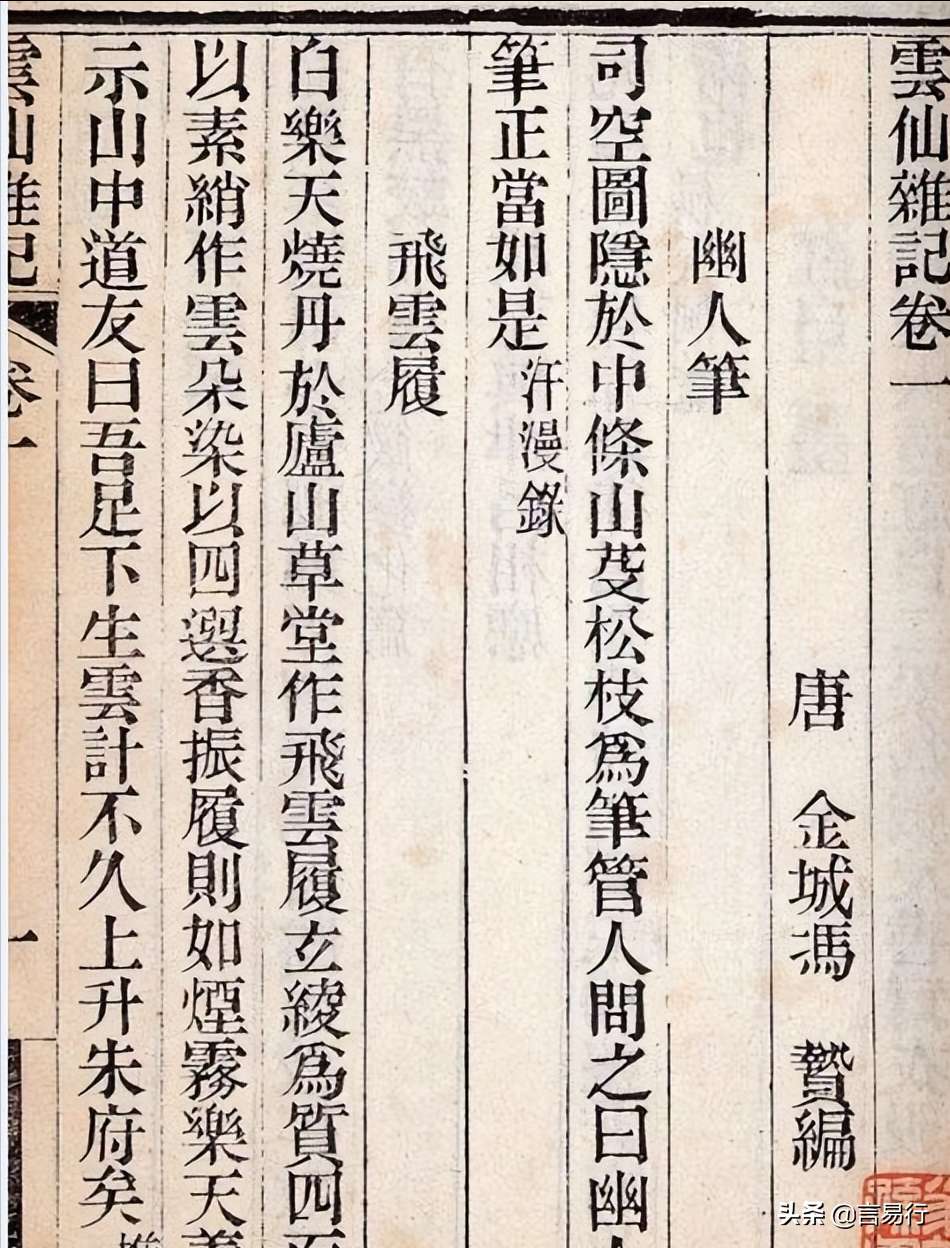 雲仙雜記卷一
唐　金城馮　贄編
幽人筆
司空圖隱於中條山芟松枝爲筆管人問之曰幽人
筆正當如是 汗漫錄
飛雲履
白樂天燒丹於廬山草堂作飛雲履玄綾爲質四面
以素綃作雲朵染以四選香振履則如煙霧樂天著
示山中道友曰吾足下生雲計不久上升朱府矣
雲仙雜記 卷一 一
头条 @言易行